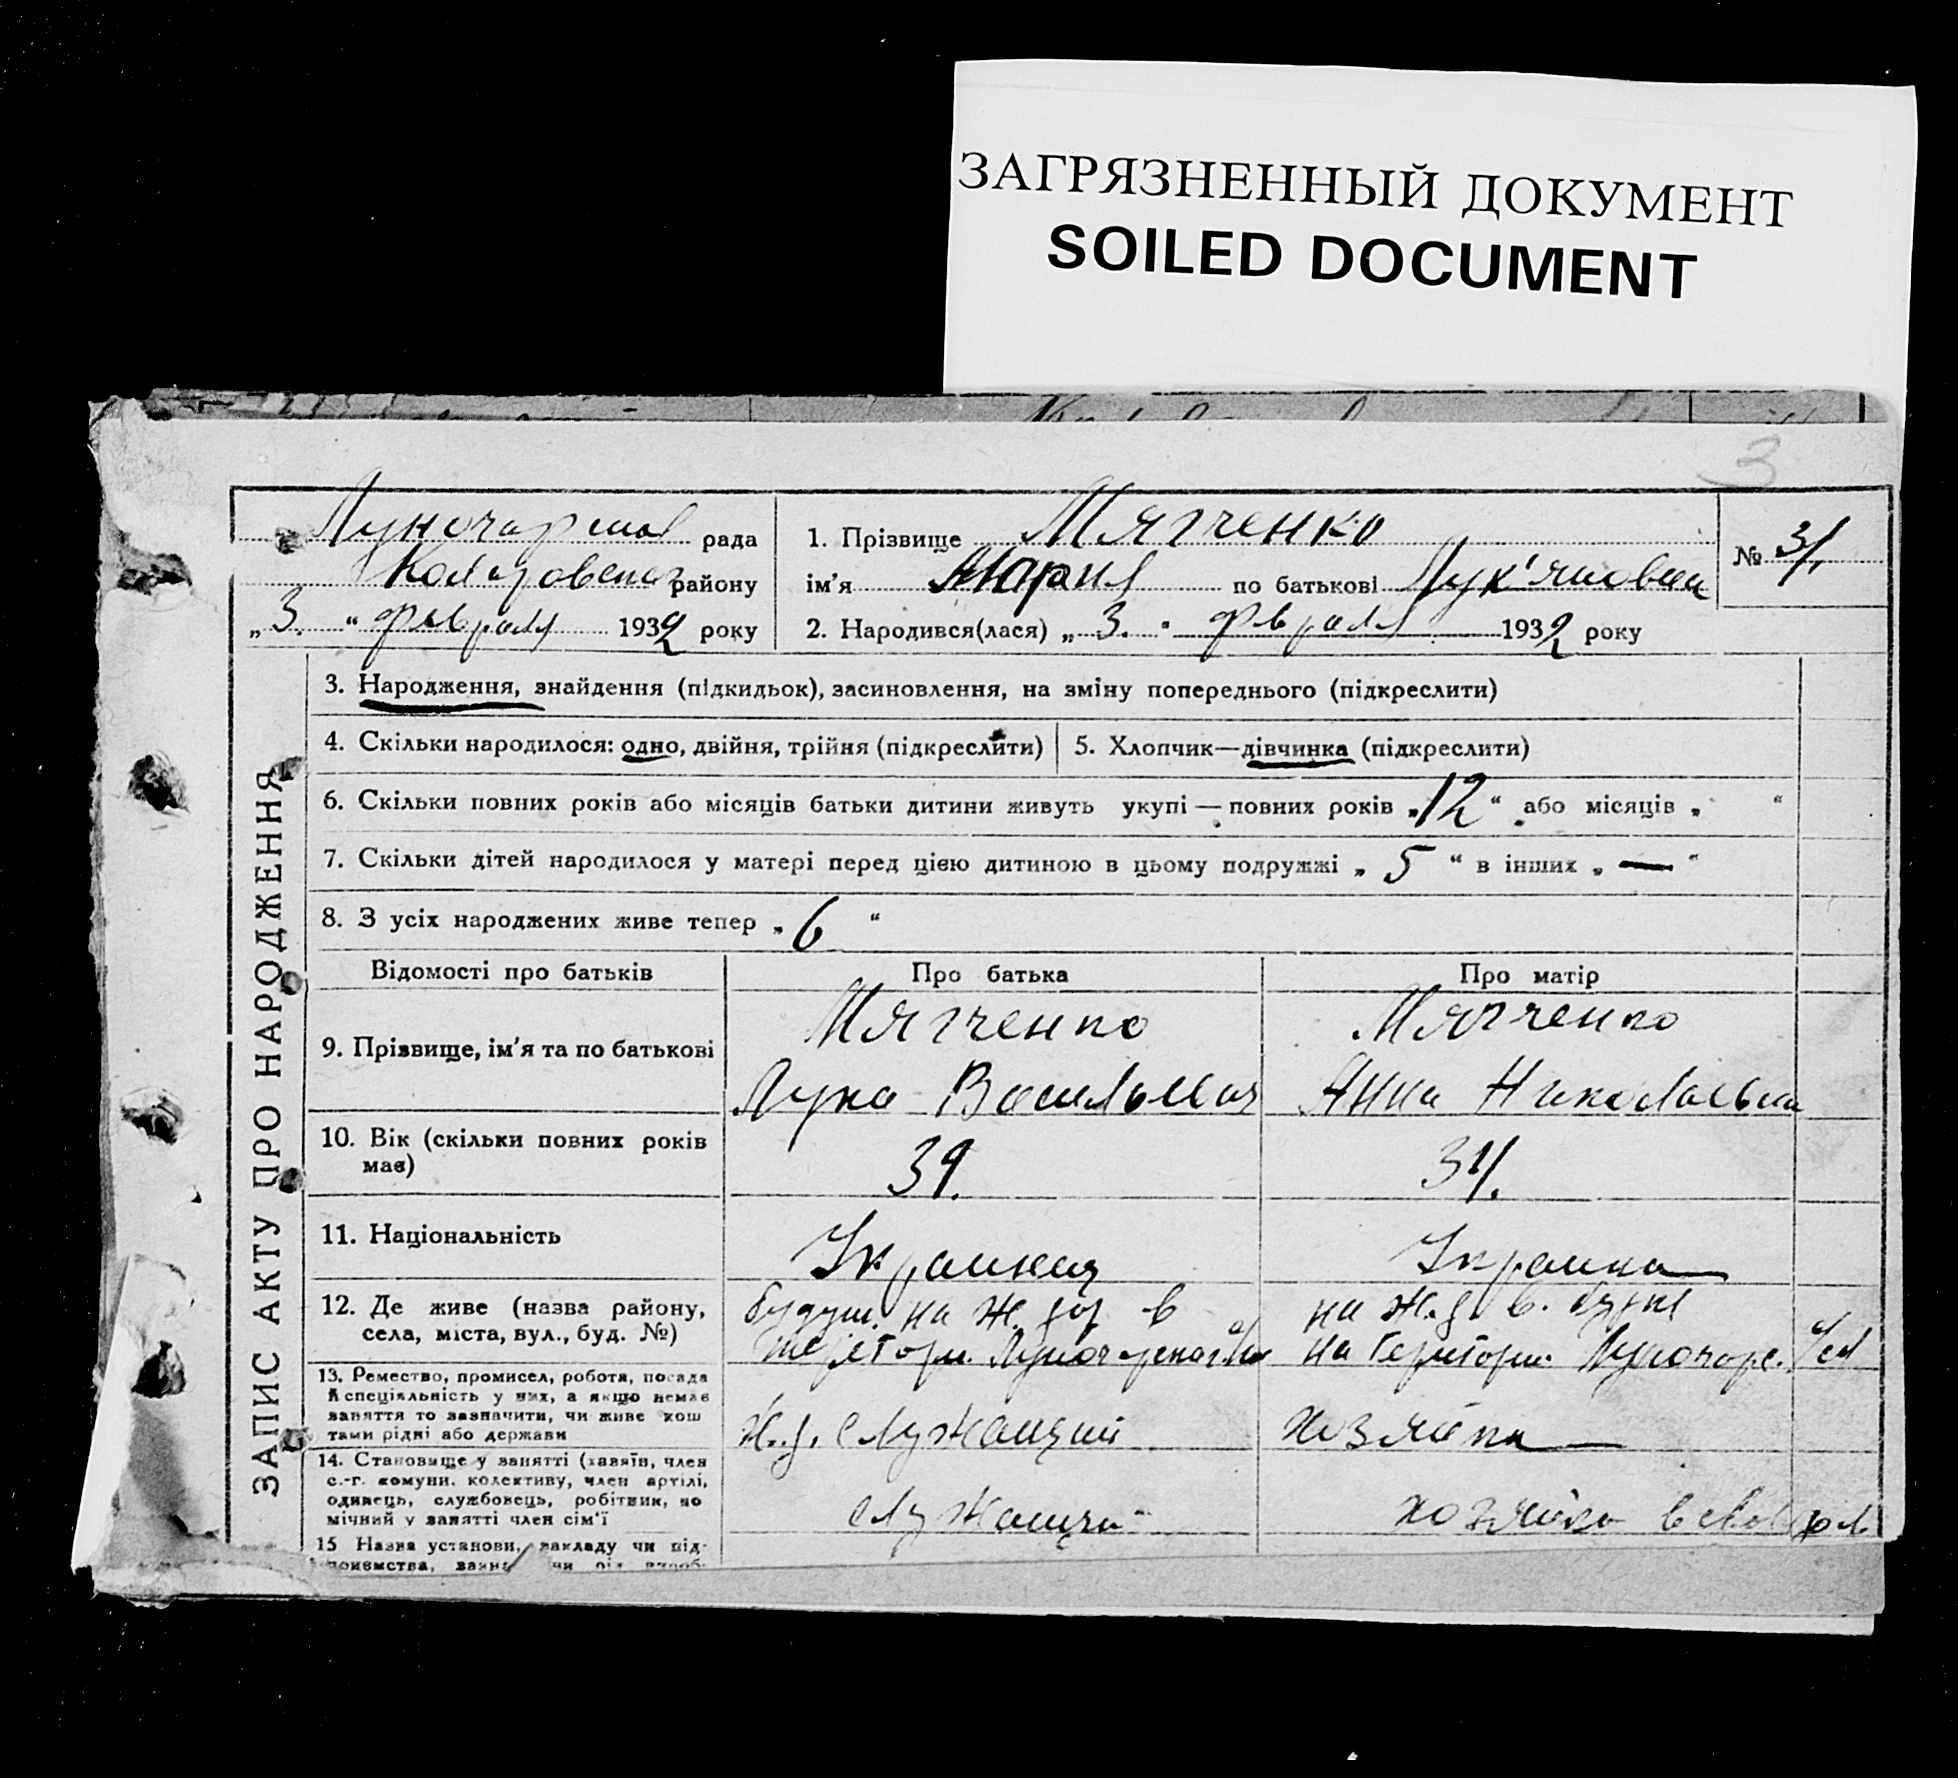 ЗАГРЯЗНЕННЫЙ ДОКУМЕНТ
SOILED DOCUMENT
3
ЗАПИС АКТУ ПРО НАРОДЖЕННЯ
рада
району
„ 3. “ февраля 1932 року
1. Прізвище Мягченко
ім'я Мария по батькові Лук'яновна
2. Народився(лася) „ 3. “ февраля 1932 року
№ 3/.
3. Народження, знайдення (підкидьок), засиновлення, на зміну попереднього (підкреслити)
4. Скільки народилося: одно, двійня, трійня (підкреслити)
5. Хлопчик—дівчинка (підкреслити)
6. Скільки повних років або місяців батьки дитини живуть укупі — повних років „ 12 “ або місяців „ “
7. Скільки дітей народилося у матері перед цією дитиною в цьому подружжі „ 5 “ в інших „ — “
8. З усіх народжених живе тепер „ 6 “
Відомості про батьків
Про батька
Про матір
9. Прізвище, ім'я та по батькові
Мягченко
Лука Васильевич
Мягченко
Анна Николаевна
10. Вік (скільки повних років
має)
39.
34.
11. Національність
Украинец
Украинка
12. Де живе (назва району,
села, міста, вул., буд. №)
на ж. в
на ж.д в.
на територии
13. Ремество, промисел, робота, посада
й спеціяльність у них, а якщо немає
заняття то зазначити, чи живе кош
тами рідні або держави
Ж.д. служащий
хозяйка
14. Становище у занятті (хазяїн, член
с.-г. комуни, колективу, член артілі,
одинець, службовець, робітник, по
мічний у занятті член сім'ї
служащий
хозяйка в
15 Назва установи, закладу чи під-